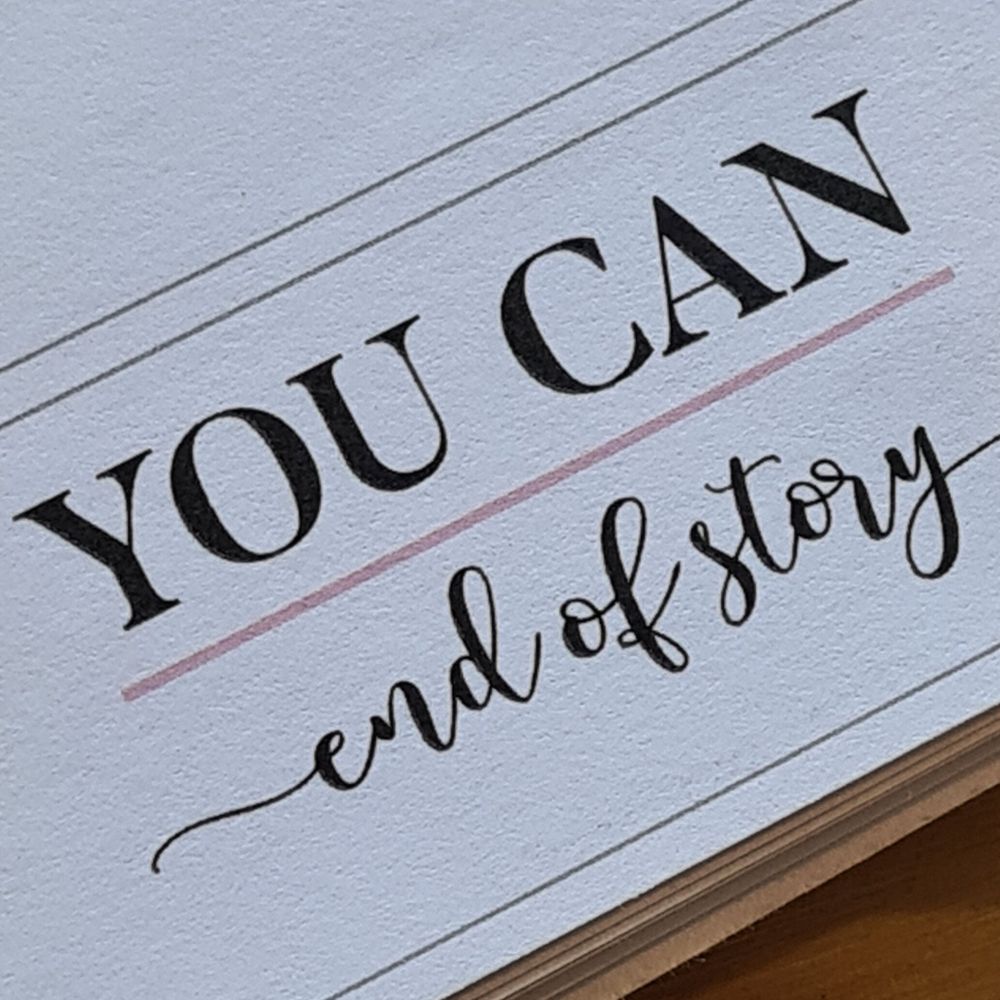 YOU CAN
end of story